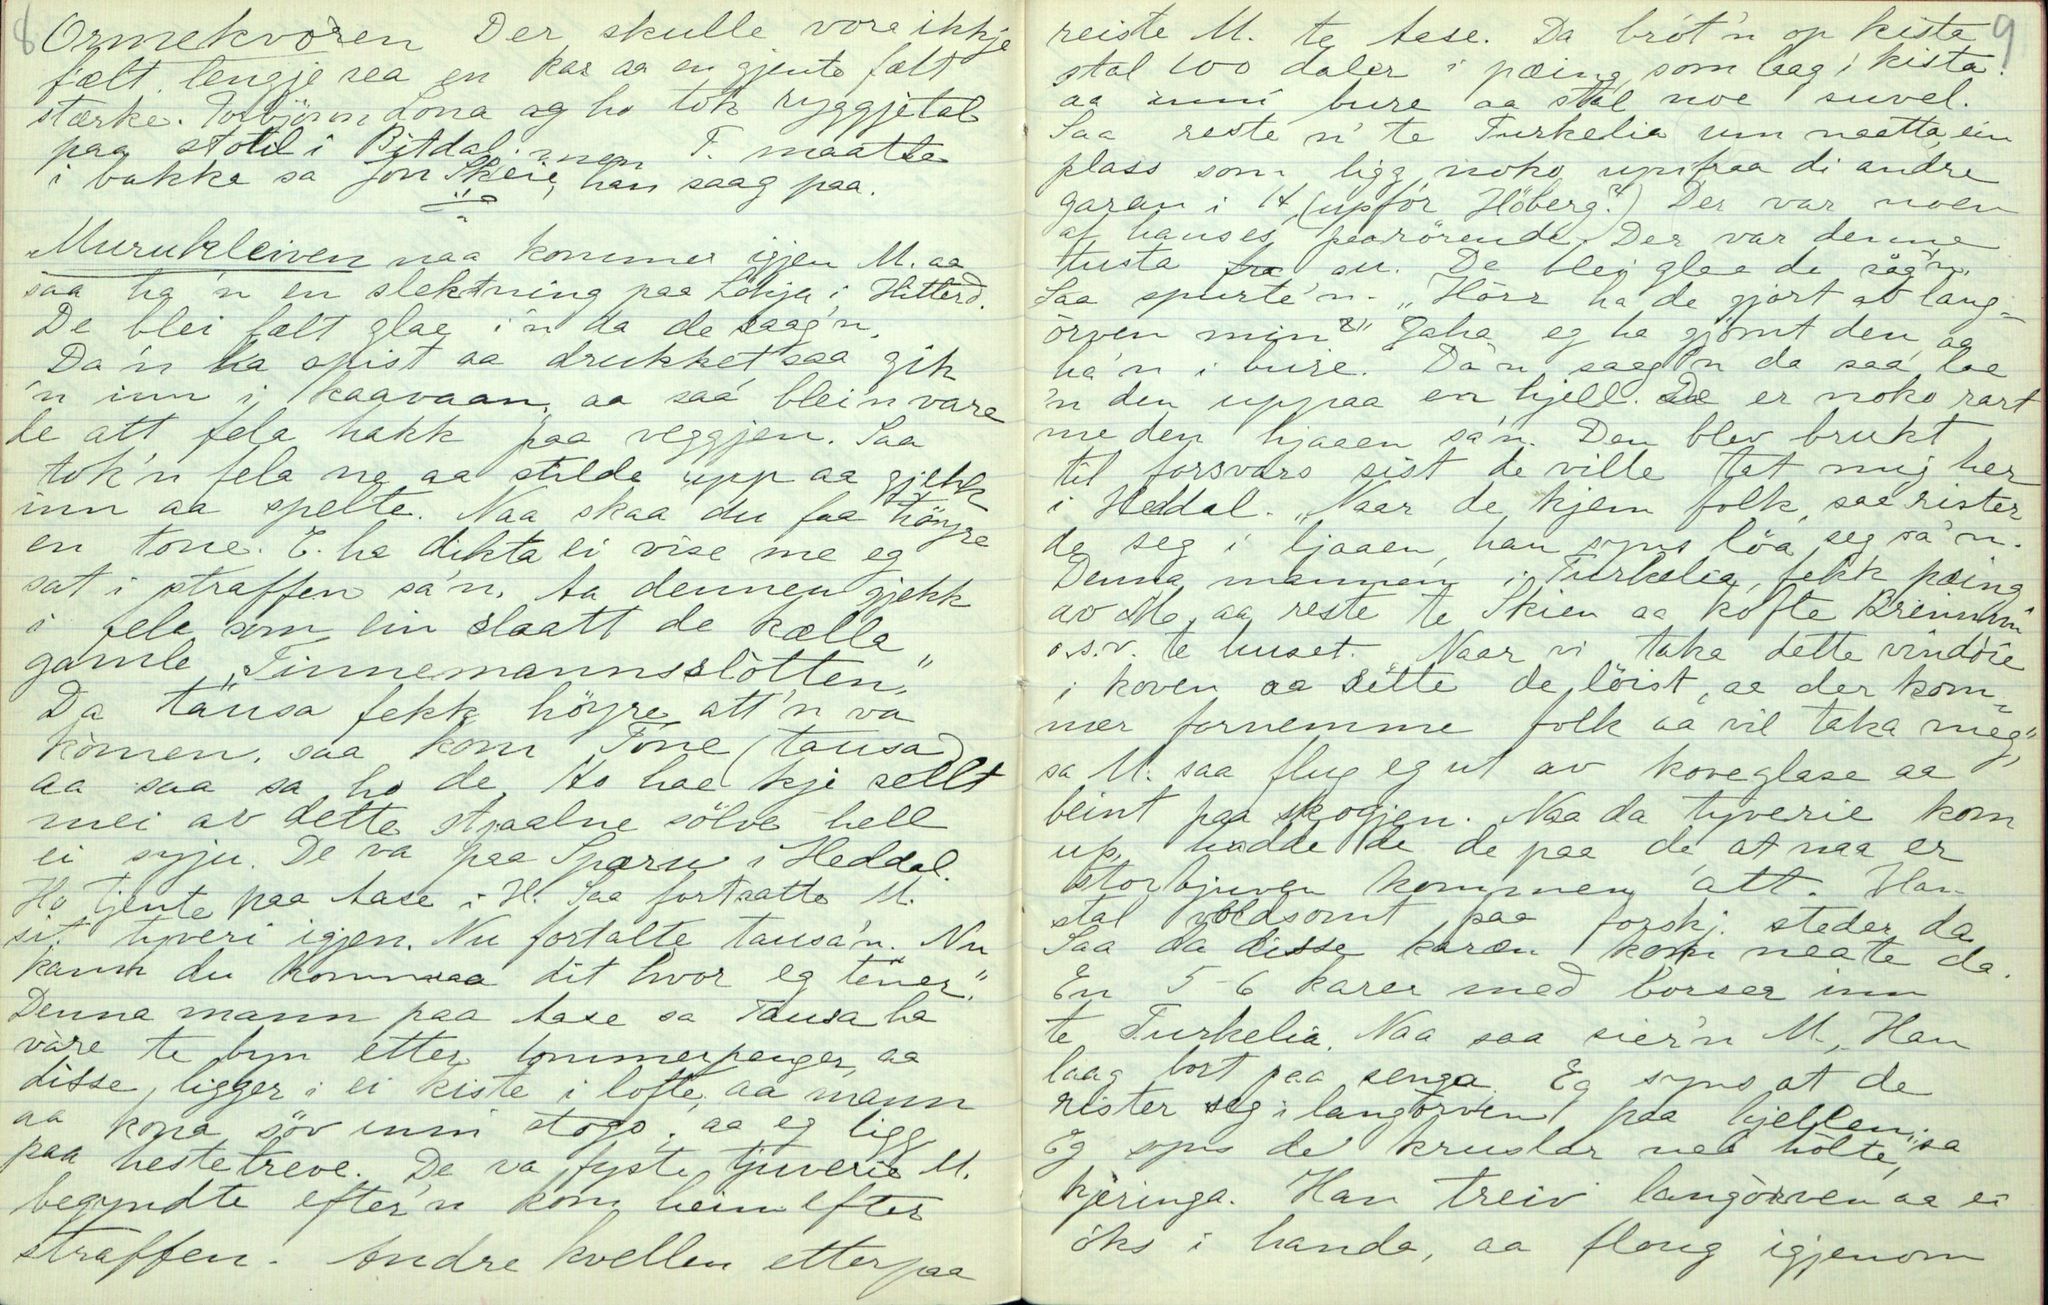 8
Ormekvoren Der skulle vore ikkje
fælt lengje sea en kar aa en gjente fælt
stærke. Torbjörn Lona og ho tok ryggjetak
paa stolil i Bitdal. men T. maatte
i bakke sa Jon Skeie, han saag paa.
Murukleiven naa kommer igjen M. aa
saa ha'n en slektning paa Löhja i Hitterd.
De blei fælt glae i'n da de saag'n.
Da'n ha spist aa drukket saa gik
'n inn i kaavaan, aa saa blei'n vare
de att fela hakk paa veggjen. Saa
tok'n fela ne aa stilde upp aa gjekk
inn aa spelte. Naa skaa du faa höyre
en tone. E. ha dikta ei vise me eg
sat i straffen sa'n. Aa dennen gjekk
i fele som ein slaatt de kælla
gamle „Tinnemannsslåtten."
Da täusa fekk höyre att'n va
kömen, saa kom Tone (tausa)
aa saa sa ho de, Ho hae kje sellt
mei av dette stjaalne sölve hell
ei syju. De va paa Sparu i Heddal.
Ho tjente paa Aase i H. Saa fortsatte M.
sit tyveri igjen. Nu fortalte tausa'n. Nu
kann du kommaa dit hvor eg tener."
Denna mann paa Aase sa Tausa ha
väre te byn etter tommerpenger, aa
disse, ligger i ei kiste i lofte, aa mann
aa kona söv inni stogo, aa eg ligg
paa hestetreve. De va fyste tjuverie M.
begyndte efter'n kom heim efter
straffen. Andre kvellen etterpaa
9
reiste M. te Aase. Da bröt'n op kista
stal 100 daler i pæing som laag i kista.
aa inni bure aa stal noe suvel.
Saa reste n' te Turkelia um naatta, ein
plass som ligg noko upifraa di andre
garan i H (upför Höberg?) Der var noen
af hanses paarörende. Der var denne
husta su. De blei glae de såg'n.
Saa spurte'n. „Hörr ha de gjort av lang-
örven min?" Jaha eg ha gjömt den aa
ha'n i bure." Da'n saag'n da saa lae
'n den uppaa en hjell. De er noko rart
me den ljaaen sa'n. Den blev brukt
til forsvars sist de ville tat mig her
i Heddal. „Naar de kjem folk, saa rister
de seg i ljaaen, han syns löa seg sa'n.
Denna mannen i Turkelia, fekk pæing
av M. aa reste te Skien aa köfte Brennvin
o.s.v. te huset. „Naar vi take dette vindöie
i koven aa sette de löist, aa der kom-
mer fornemme folk aa vil taka meg",
sa M. saa flug eg ut av koveglase aa
beint paa skogjen. Naa da tyverie kom
up, hadde de de paa de, at naa er
stortjuven kommen att. Han
stal voldsomt paa forskj. steder da
Saa da disse karen kom neate da.
En 5-6 karer med börser inn
te Turkelia. Naa saa sier'n M, Han
laag bort paa senga. Eg syns at de
rister seg i langörven paa hjellen."
Eg syns de kruslar nea hölte," sa
kjæringa. Han treiv langörven aa ei
öks i handa, aa floug igjenom